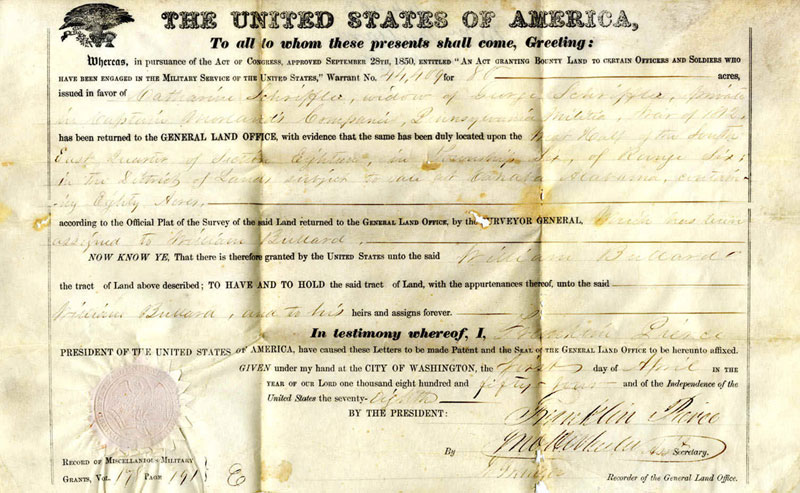 THE UNITED STATES OF AMERICA,
To all to whom these presents shall come, Greeting:
Whereas, in pursuance of the Act of Congress, approved September 28th, 1850, entitled "An Act granting Bounty Land to certain Officers and Soldiers who
have been engaged in the Military Service of the United States," Warrant No. 44,409 for 80 acres,
issued in favor of Katharine Schriffler, widow of George Schriffler, private
in Captain Company, Pennsylvania Militia, War of 1812
has been returned to the GENERAL LAND OFFICE, with evidence that the same has been duly located upon the West Half of the South
East Quarter of Section Eighteen, in Township Six, of Range Six
in the District of Lands subject to sale at Cahaba Alabama, contain-
ing Eighty Acres.
according to the Official Plat of the Survey of the said Land returned to the General Land Office, by the SURVEYOR GENERAL, which has been
assigned to William Bullard.
NOW KNOW YE, That there is therefore granted by the United States unto the said William Bullard
the tract of Land above described; TO HAVE AND TO HOLD the said tract of Land, with the appurtenances thereof, unto the said
William Bullard, and to his heirs and assigns forever.
In testimony whereof, I, Franklin Pierce
PRESIDENT OF THE UNITED STATES OF AMERICA, have caused these Letters to be made Patent and the Seal of the General Land Office to be hereunto affixed.
GIVEN under my hand at the CITY OF WASHINGTON, the first day of April in the
year of our Lord one thousand eight hundred and fifty four and of the Independence of the
United States the seventy-eighth
BY THE PRESIDENT: Franklin Pierce
By Secretary.
Record of Miscellaneous Military
Grants, Vol. Page E
Recorder of the General Land Office.